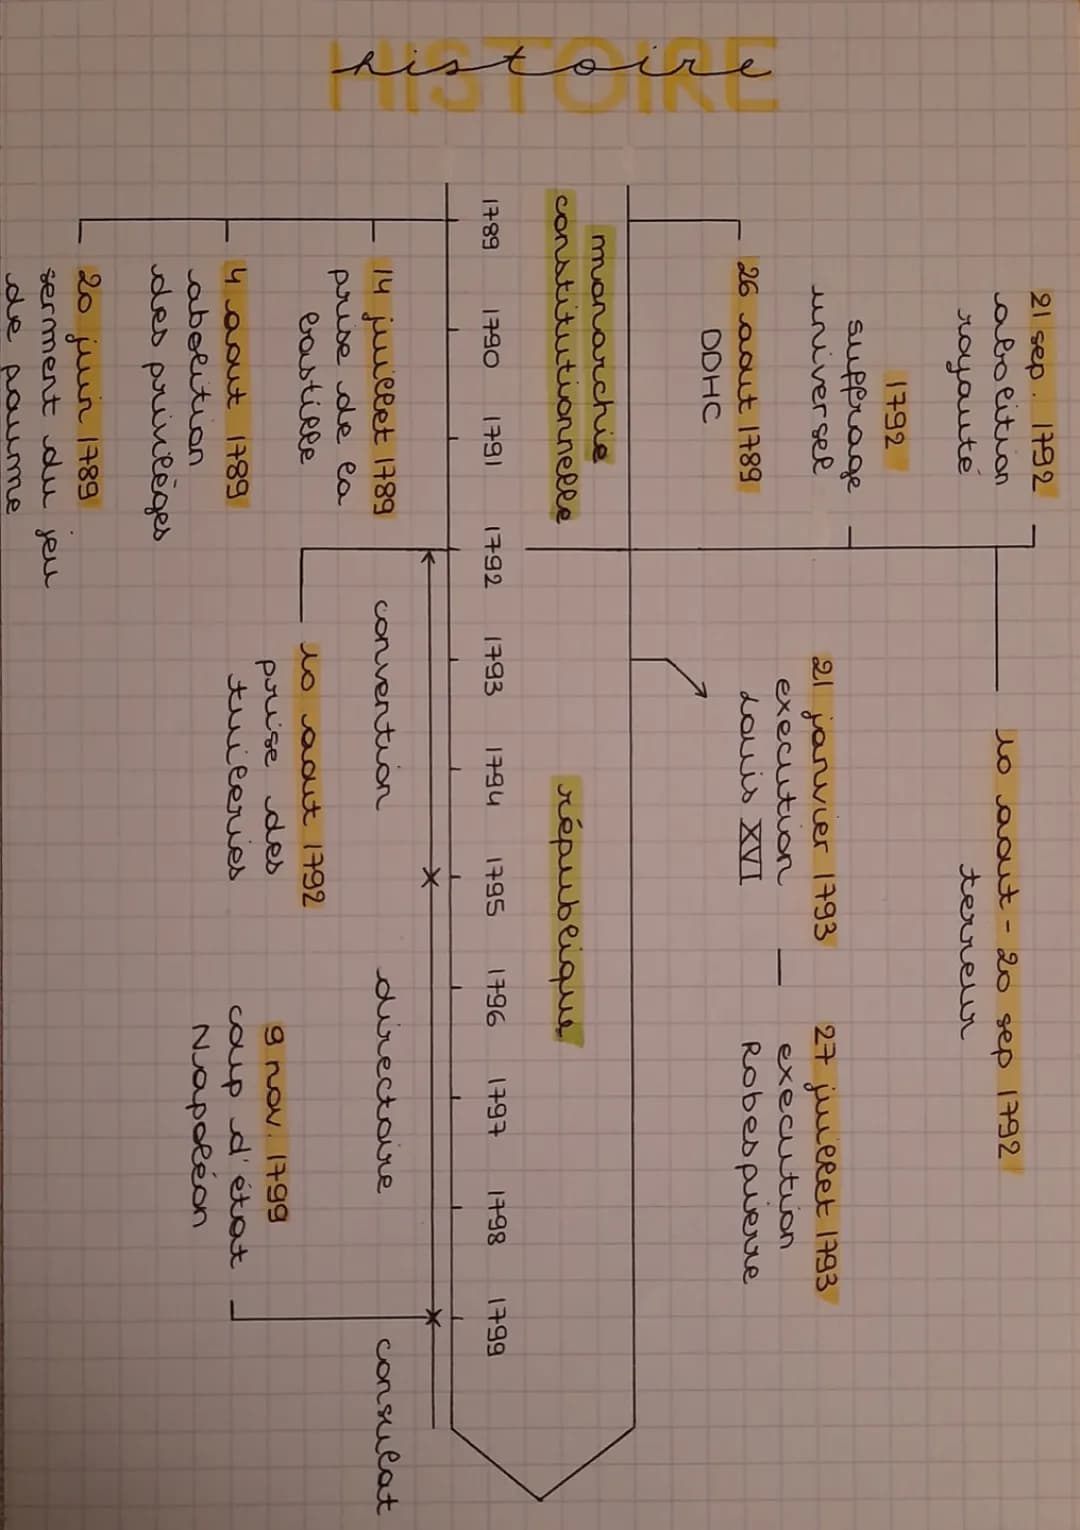 HISTOIRE
histoire
21 sep. 1792
abolition
royauté
1792
suffrage
universel
26 aout 1789
DDHC
10 aout - 20 sep 1792
terreur
21 janvier 1793
execution
Louis XVI
27 juillet 1793
execution
Robespierre
monarchie
constitutionnelle
république
1789 1790 1791 1792 1793 1794 1795 1796 1797 1798 1799
convention
directoire
consulat
14 juillet 1789
prise de la
bastille
4 aout 1789
abolition
des privilèges
20 juin 1789
serment du jeu
de paume
10 aout 1792
prise des
tuileries
9 nov. 1799
coup d'état
Napoléon